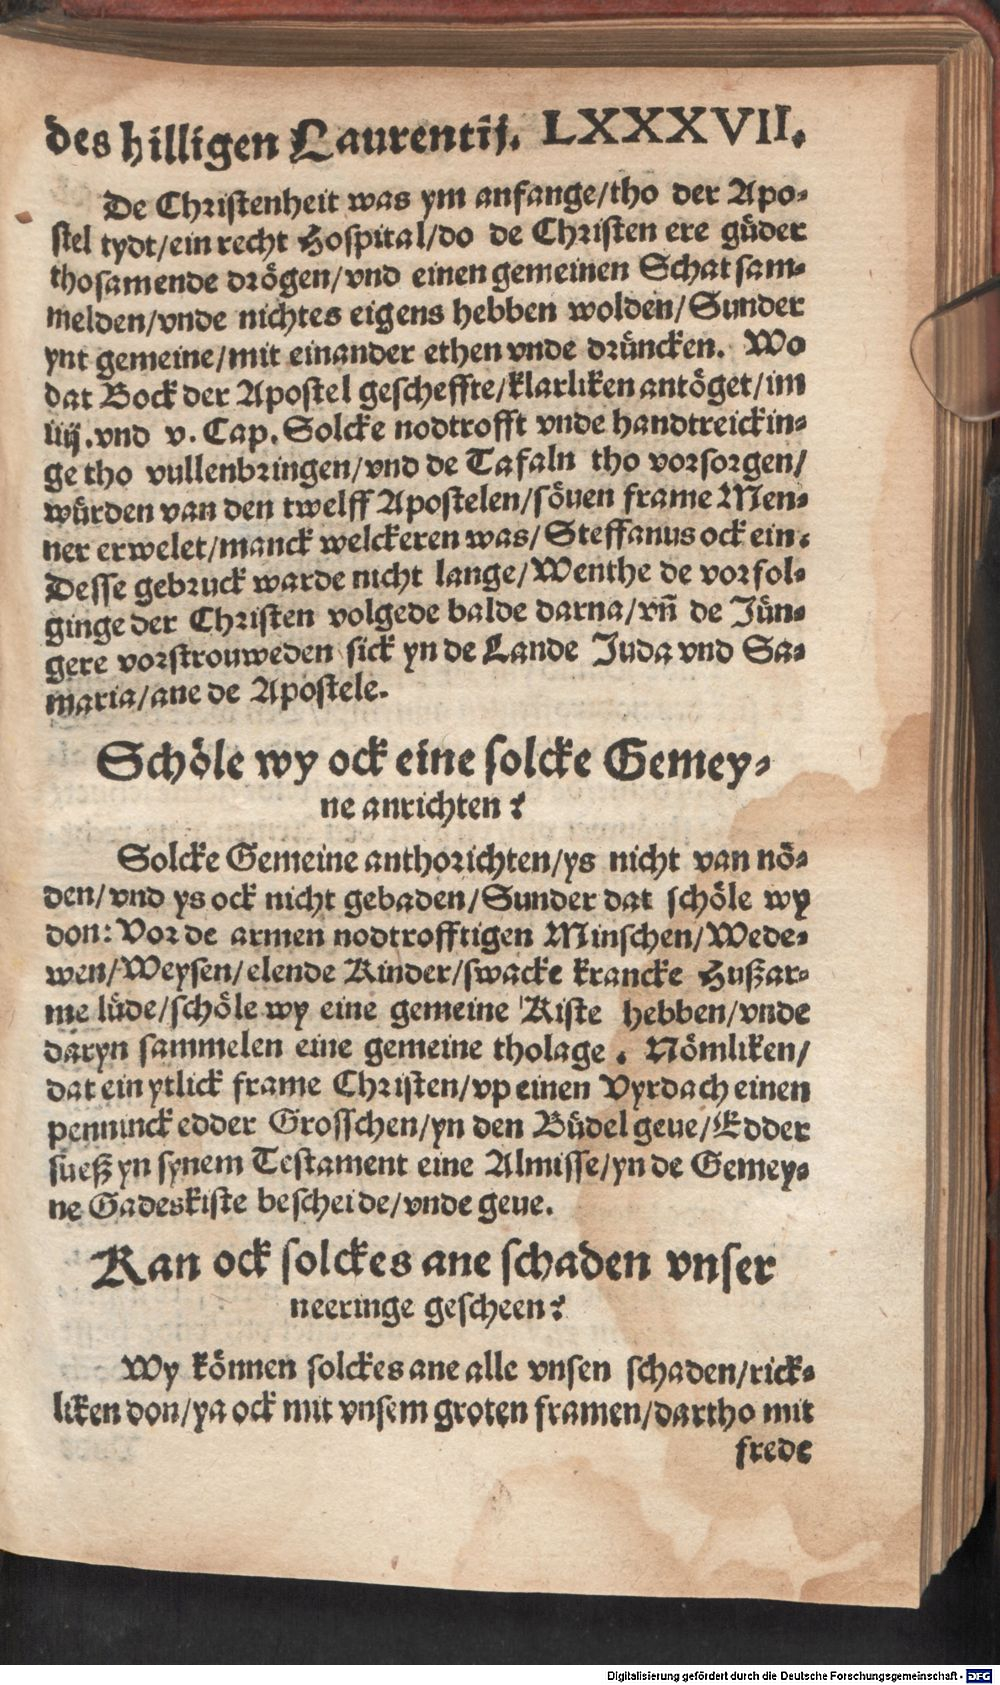 des hilligen Laurentij. LXXXVII.
De Christenheit was ym anfange/tho der Apo-
stel tydt/ein recht Hospital/do de Christen ere güder
thosamende drögen/vnd einen gemeinen Schat sam-
melden/vnde nichtes eigens hebben wolden/Sunder
ynt gemeine/mit einander ethen vnde drüncken. Wo
dat Bock der Apostel gescheffte/klarliken antöget/im
iiij.vnd v. Cap. Solcke nodtrofft vnde handtreickin-
ge tho vullenbringen/vnd de Tafaln tho vorsorgen/
würden van den twelff Apostelen/söuen frame Men-
ner erwelet/manck welckeren was/Steffanus ock ein.
Desse gebruck warde nicht lange/Wenthe de vorfol-
ginge der Christen volgede balde darna/vñ de Jün-
gere vorstrouweden sick yn de Lande Juda vnd Sa-
maria/ane de Apostele.
Schöle wy ock eine solcke Gemey-
ne anrichten?
Solcke Gemeine anthorichten/ys nicht van nö-
den/vnd ys ock nicht gebaden/Sunder dat schöle wy
don: Vor de armen nodtrofftigen Minschen/Wede-
wen/Weysen/elende Kinder/swacke krancke Hußar-
me lüde/schöle wy eine gemeine Kiste hebben/vnde
daryn sammelen eine gemeine tholage. Nömliken/
dat ein ytlick frame Christen/vp einen Vyrdach einen
penninck edder Grosschen/yn den Büdel geue/Edder
sueß yn synem Testament eine Almisse/yn de Gemey-
ne Gadeskiste bescheide/vnde geue.
Kan ock solckes ane schaden vnser
neeringe gescheen?
Wy können solckes ane alle vnsen schaden/rick-
liken don/ya ock mit vnsem groten framen/dartho mit
frede
Digitalisierung gefördert durch die Deutsche Forschungsgemeinschaft - DFG